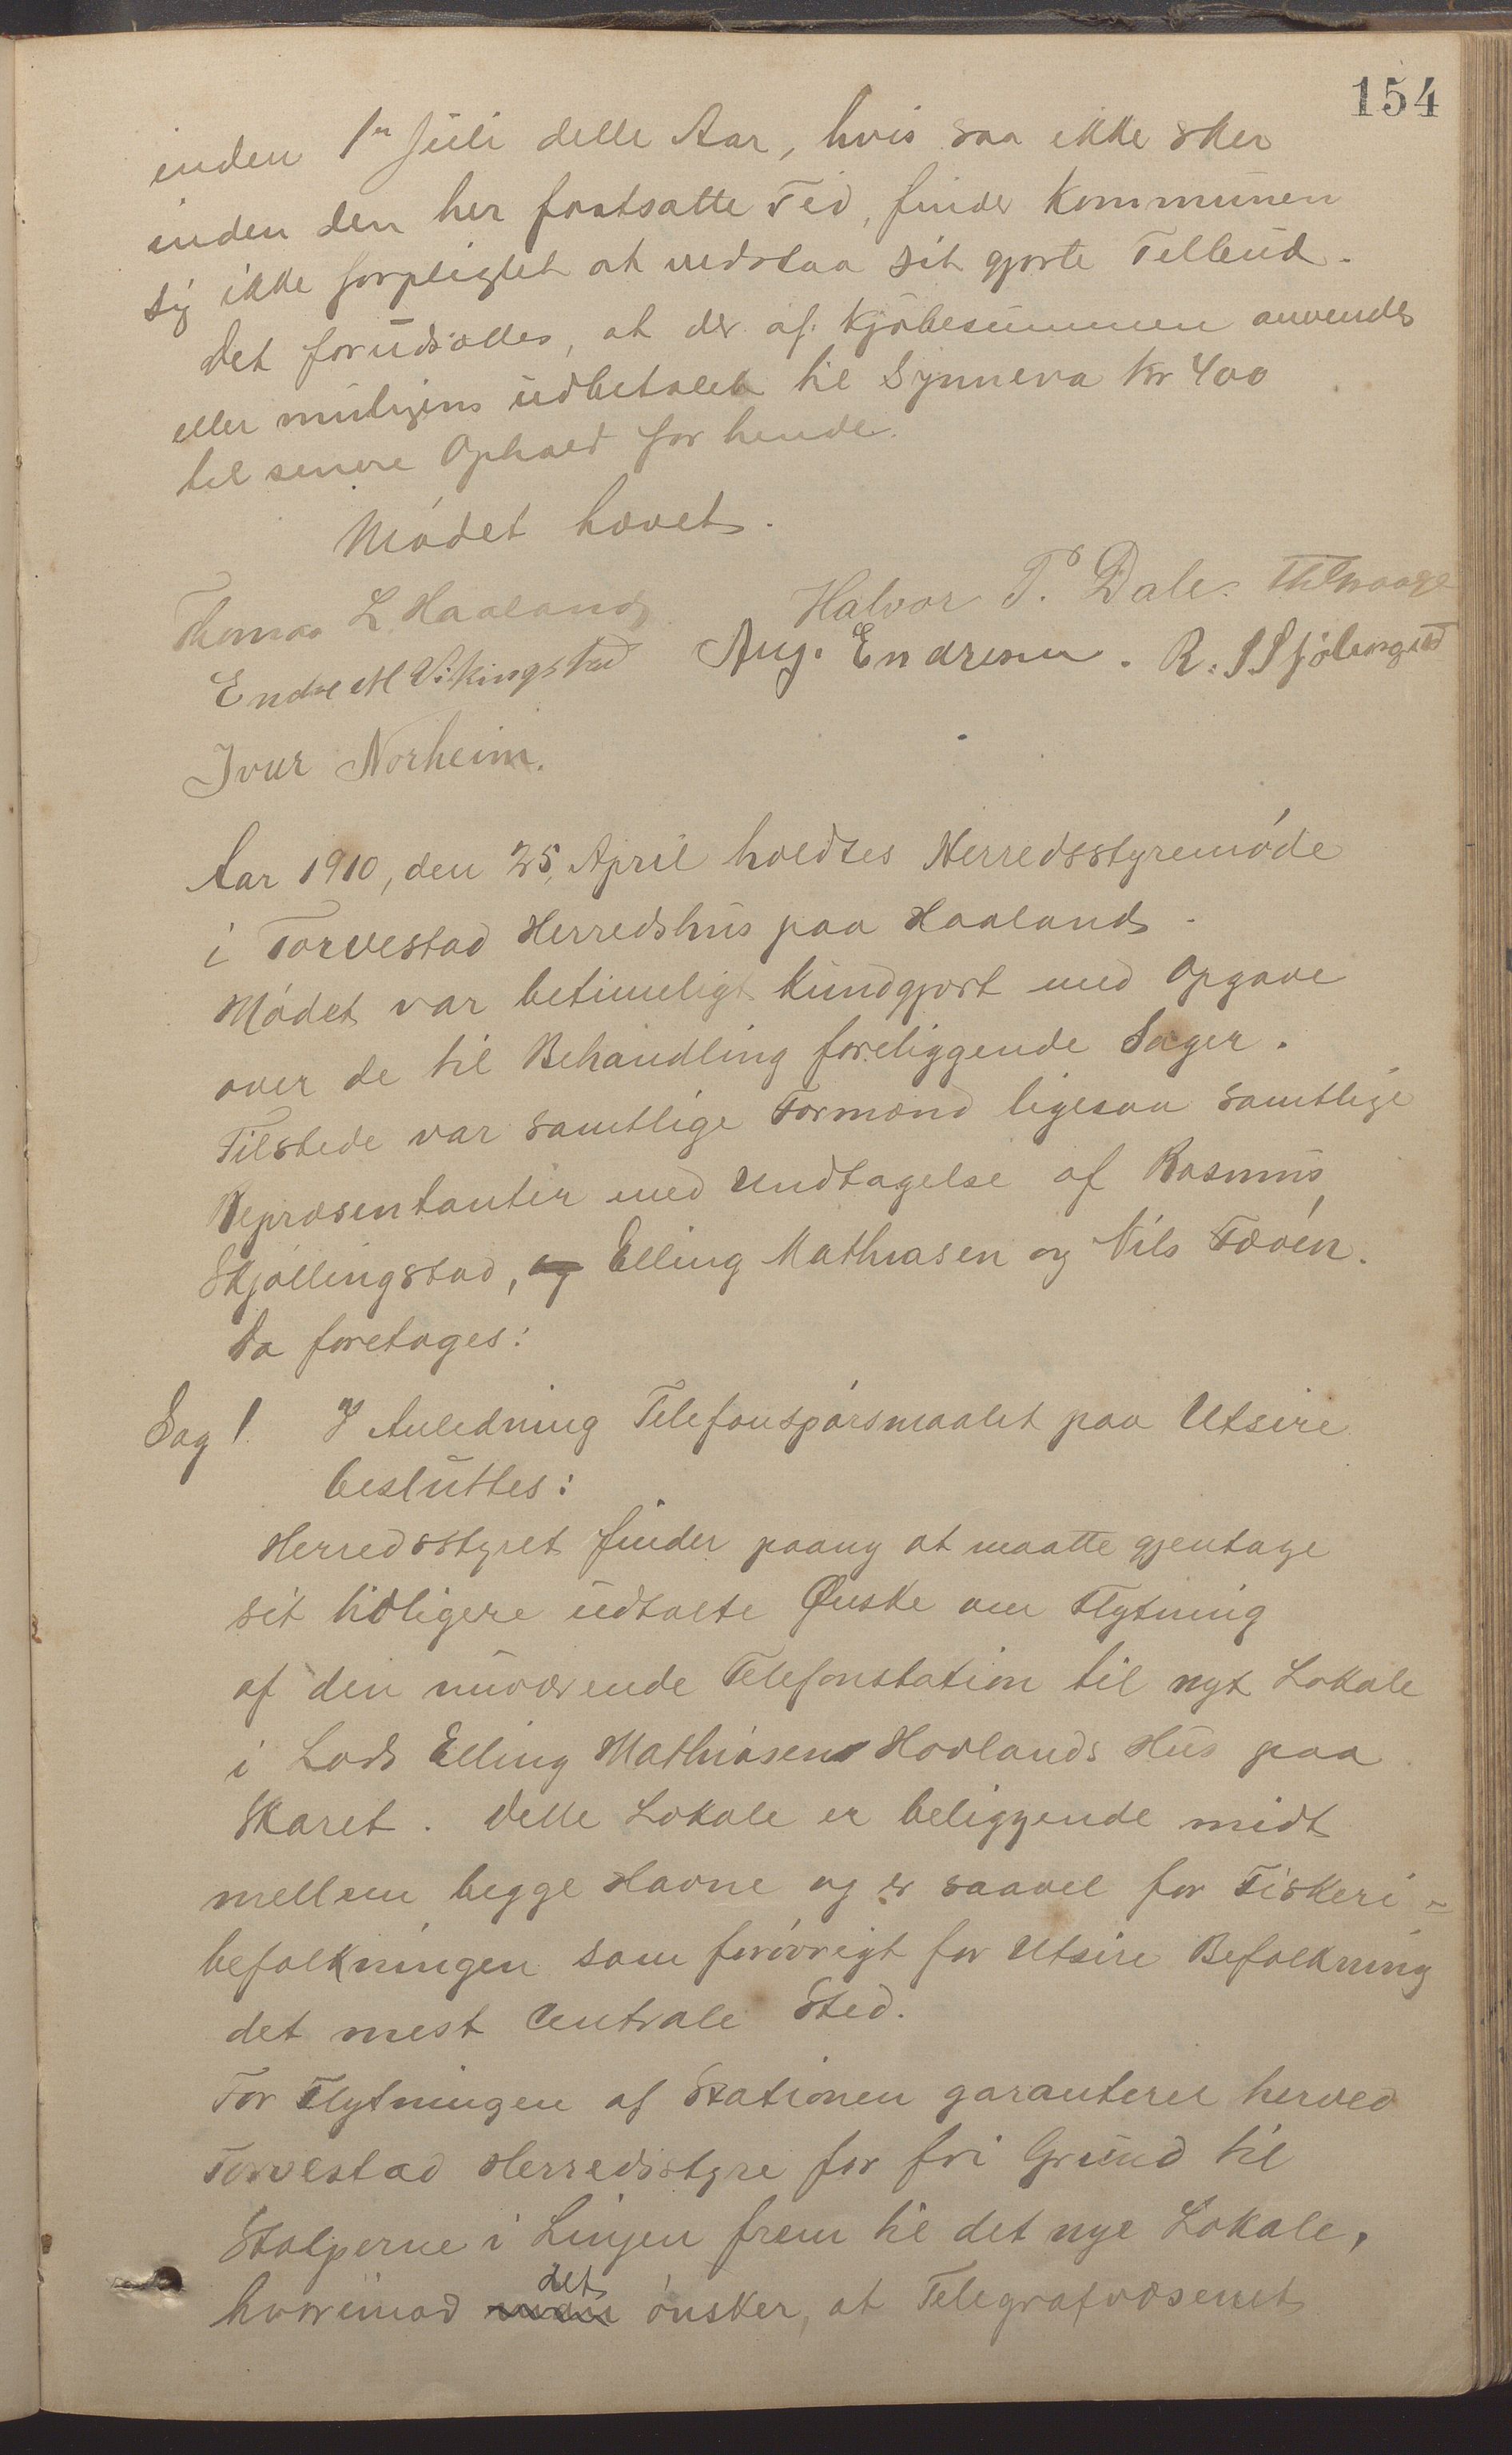 154
inden 1ste Juli dette Aar, hvis saa ikke sker
inden den her fastsatte Tid, finder Kommunen
sig ikke forpligtet at vedstaa sit gjorte Tilbud.
Det forudsættes, at der af Kjøbesummen anvendes
eller muligens udbetales til Synneva Kr 400
til senere Ophold for hende.
Mødet hævet.
Thomas L. Haaland Halvor P. Dale.
Endre M Vikingstad Aug. Endresen. R. S Skjölingstad
Ivar Norheim.
Aar 1910, den 25, April holdtes Herredsstyremøde
i Torvestad Herredshus paa Haaland.
Mødet var betimeligt kundgjort med Opgave
over de til Behandling foreliggende Sager.
Tilstede var samtlige Formænd ligesaa samtlige
Repræsentanter med Undtagelse af Rasmus
Skjøllingstad, og Elling Mathiasen og Nils Tovén.
Da foretages:
Sag 1 I Anledning Telefonspørsmaalet paa Utsire
besluttes:
Herredsstyret finder paany at maatte gjentage
sit tidligere udtalte Ønske om Flytning
af den nuværende Telefonstation til nyt Lokale
i Lods Elling Mathiasen Hovlands Hus paa
Skaret. Dette Lokale er beliggende midt
mellem begge Havne og er saavel for Fiskeri-
befolkningen som forøvrigt for Utsire Befolkning
det mest centrale Sted.
For Flytningen af Stationen garanterer herved
Torvestad Herredsstyre for fri Grund til
Stolperne i Linjen frem til det nye Lokale,
hvorimod det ønsker, at Telegrafvæsenet